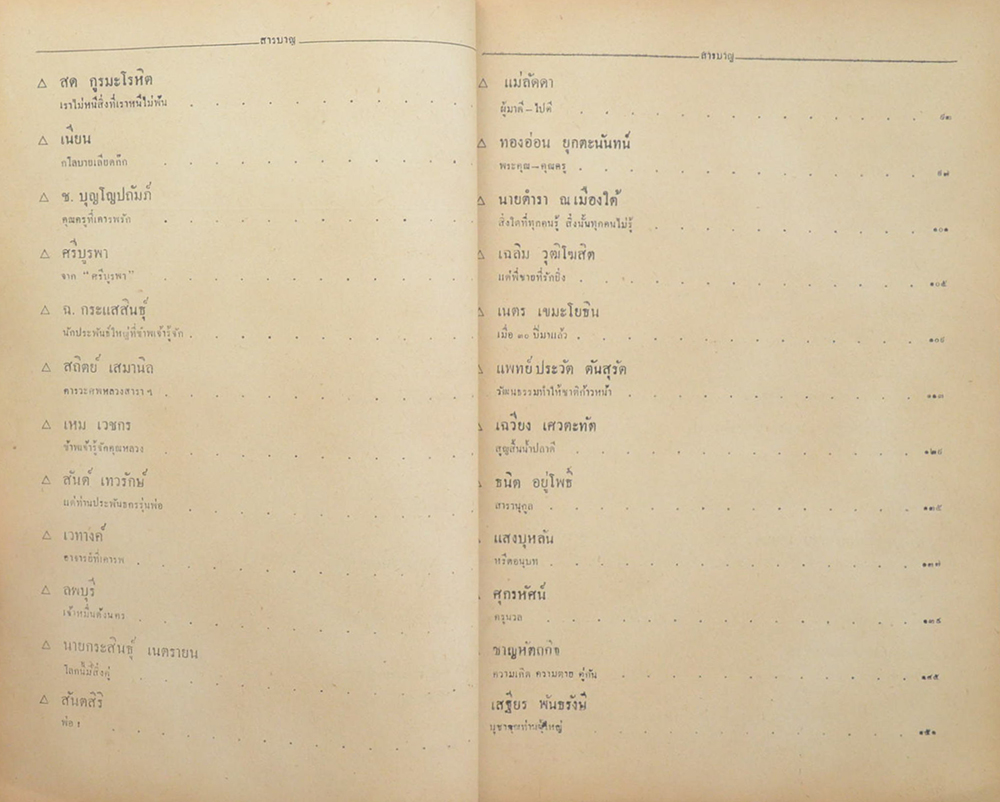 สารบาญ
△ สด กูรมะโรหิต
เราไม่หนีสิ่งที่เราหนีไม่พ้น
△ เนียน
△ ช. บุญโญปถัมภ์
คุณครูที่เคารพรัก
△ ศรีบูรพา
จาก “ศรีบูรพา”
△ ฉ. กระแสสินธุ์
นักประพันธ์ใหญ่ที่ข้าพเจ้ารู้จัก
△ สถิตย์ เสมานิล
คารวะศพหลวงสารา ๆ
△ เหม เวชกร
ข้าพเจ้ารู้จักคุณหลวง
△ สันต์ เทวรักษ์
แด่ท่านประพันธกรรุ่นพ่อ
△ เวทางค์
อาจารย์ที่เคารพ
△ ลพบุรี
△ นายกระสินธุ์ เนตรายน
โลกนี้มีสิ่งคู่
△ สันตสิริ
พ่อ !
สารบาญ
△ แม่ลัดดา
ผู้มาดี – ไปดี ๘๓
△ ทองอ่อน ยุกตะนันทน์
พระคุณ – คุณครู ๘๗
△ นายตำรา ณ เมืองใต้
สิ่งใดที่ทุกคนรู้ สิ่งนั้นทุกคนไม่รู้ ๑๐๑
△ เฉลิม วุฒิโฆสิต
แด่พี่ชายที่รักยิ่ง ๑๐๕
เนตร เขมะโยธิน
เมื่อ ๓๐ ปีมาแล้ว ๑๐๙
แพทย์ ประวัด ตันสุรัต
วัฒนธรรมทำให้ชาติก้าวหน้า ๑๑๓
เฉวียง เศวตะทัต
สูญสิ้นน้ำปลาดี ๑๒๙
ธนิต อยู่โพธิ์
สารานุกูล ๑๓๕
แสงบุหลัน
หรีดอนุบท ๑๓๗
ศุกรหัศน์
ครูนวล ๑๓๙
ชาญหัตถกิจ
ความเกิด ความตาย คู่กัน ๑๔๕
เสฐียร พันธรังษี
บูชาจุฬท่านผู้ใหญ่ ๑๕๑